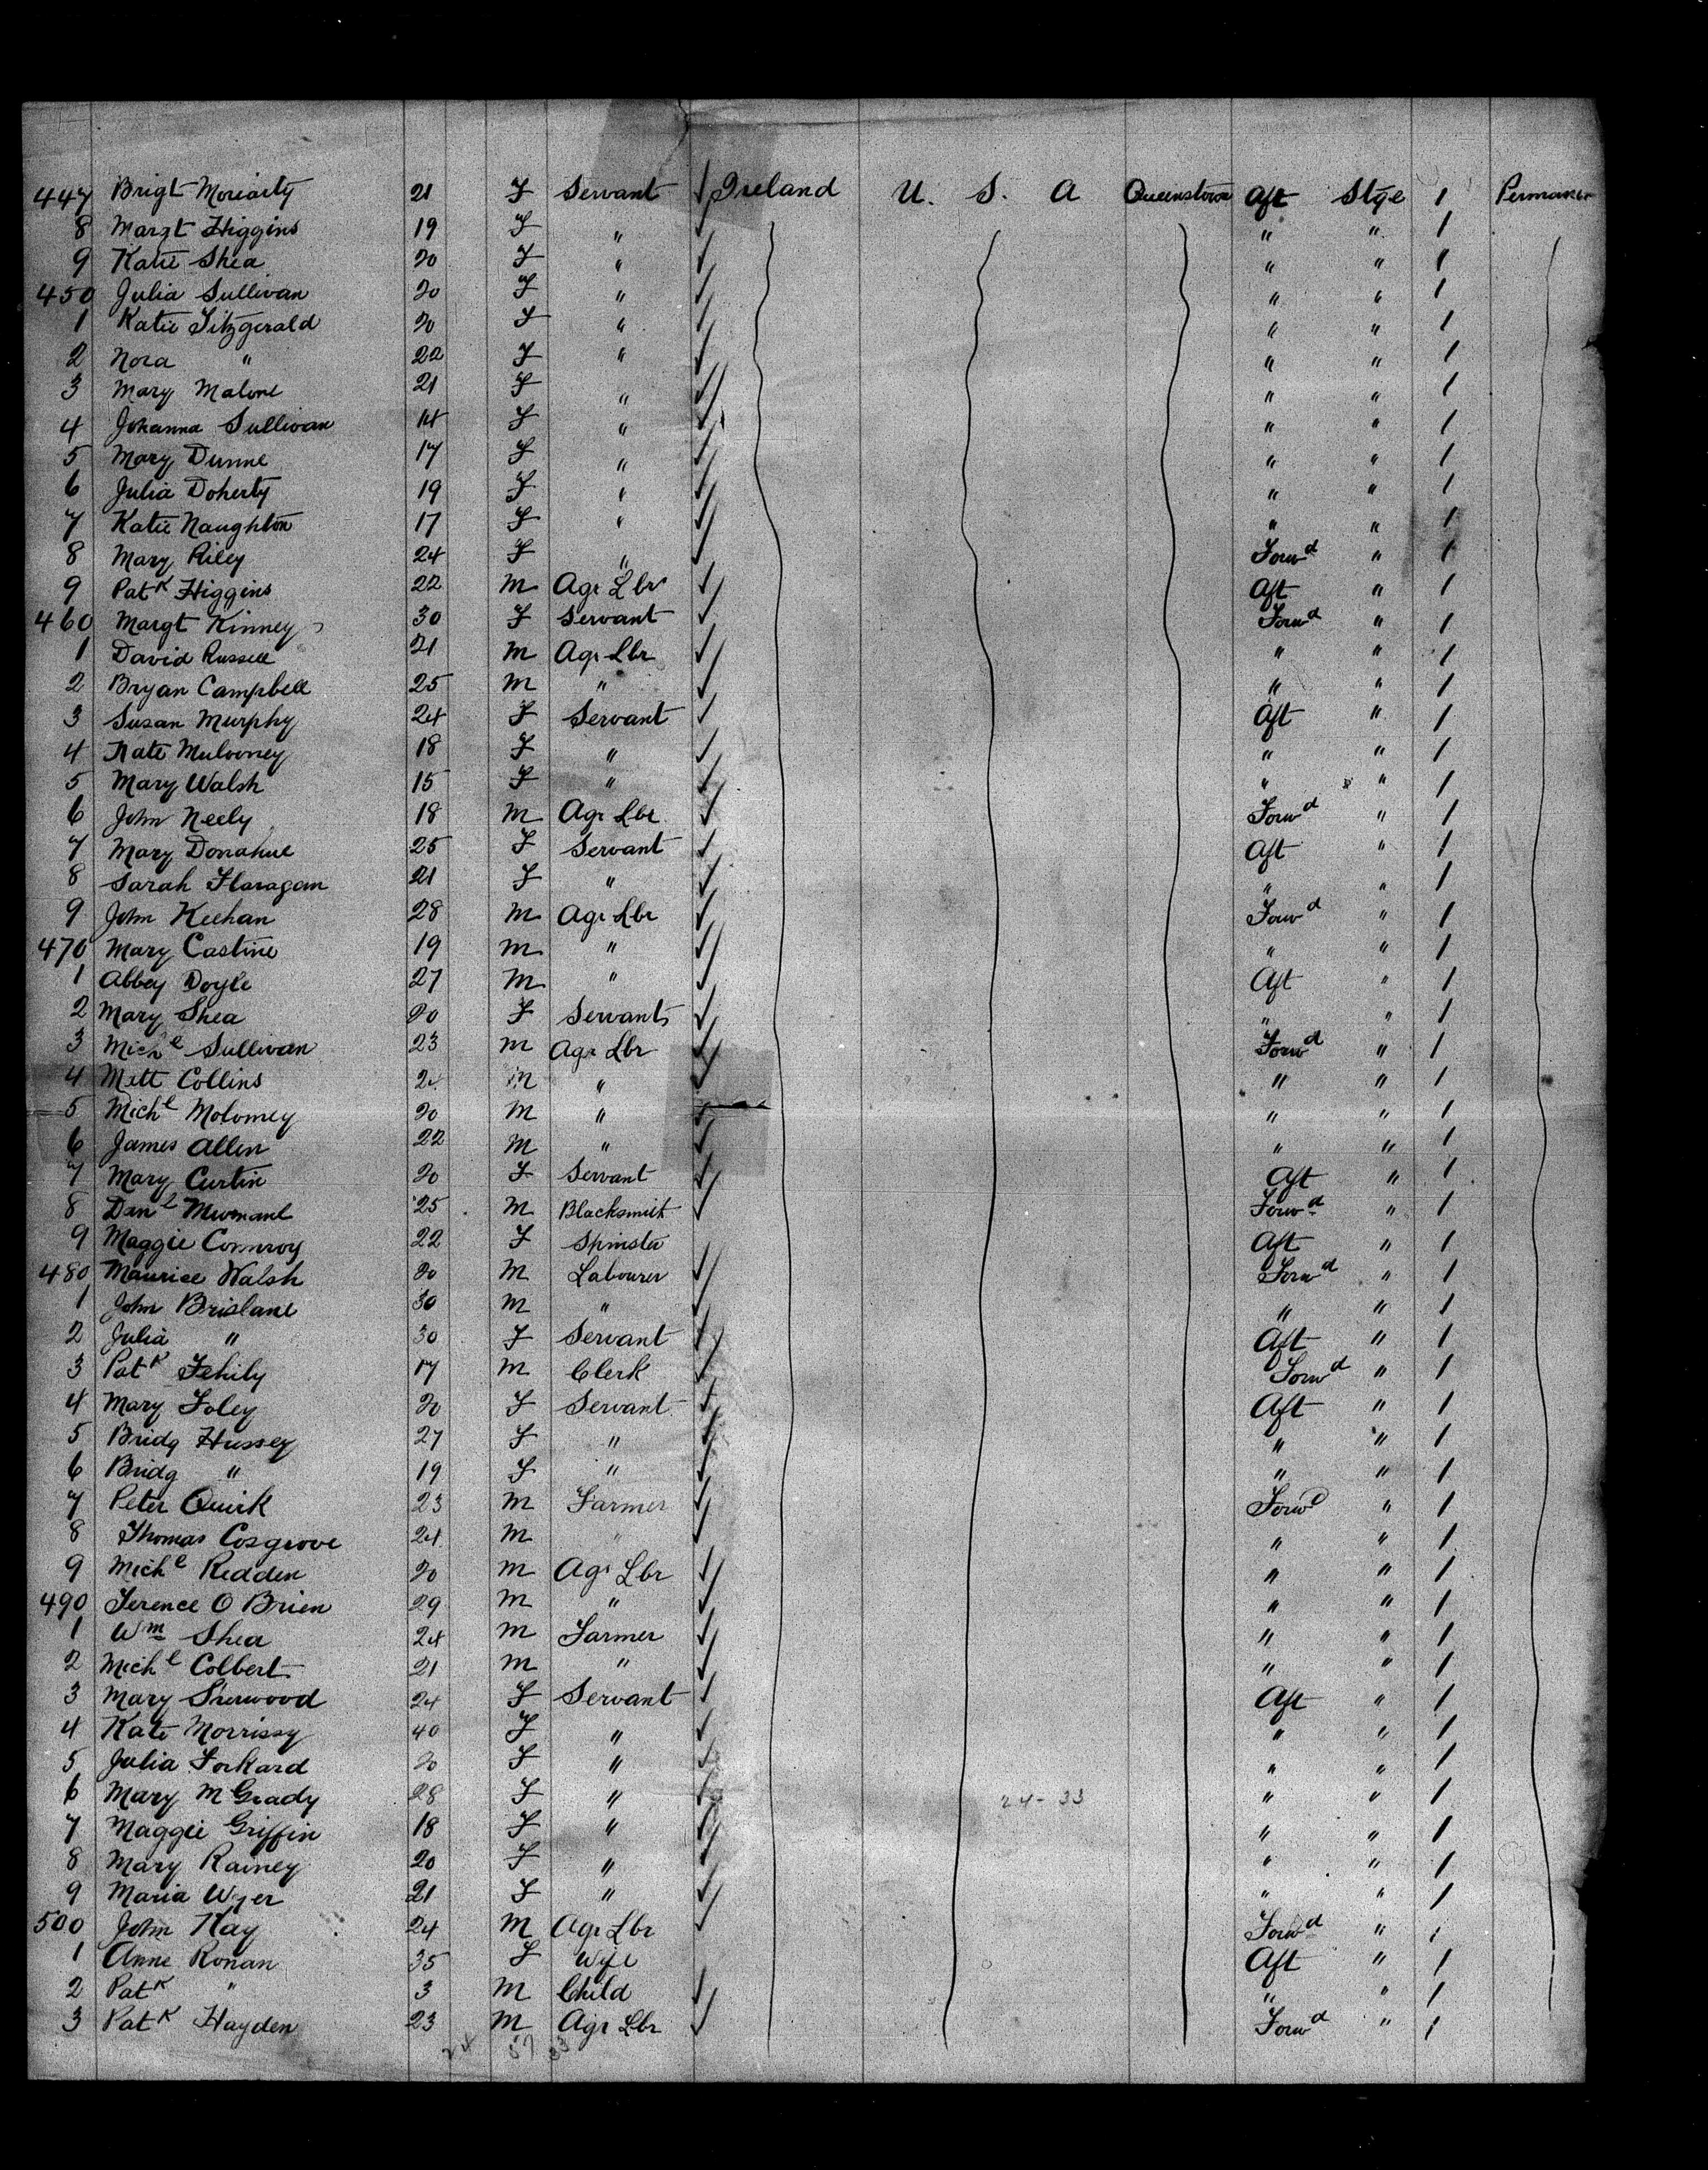 447 Brigt Moriarty 21 F Servant ✓ Ireland U. S. A Queenstown Aft Stge 1 Permanen
8 Margt Higgins 19 F " ✓ " " 1
9 Katie Shea 20 F " ✓ " " 1
450 Julia Sullivan 20 F " ✓ " " 1
1 Katie Fitzgerald 20 F " ✓ " " 1
2 Nora " 22 F " ✓ " " 1
3 Mary Malone 21 F " ✓ " " 1
4 Johanna Sullivan 14 F " ✓ " " 1
5 Mary Dunne 17 F " ✓ " " 1
6 Julia Doherty 19 F " ✓ " " 1
7 Katie Naughton 17 F " ✓ " " 1
8 Mary Riley 24 F " ✓ Forwd " 1
9 Patk Higgins 22 M Agr Lbr ✓ Aft " 1
460 Margt Kinney 30 F Servant ✓ Forwd " 1
1 David Russell 21 M Agr Lbr ✓ " " 1
2 Bryan Campbell 25 M " ✓ " " 1
3 Susan Murphy 24 F Servant ✓ Aft " 1
4 Kate Mulooney 18 F " ✓ " " 1
5 Mary Walsh 15 F " ✓ " " 1
6 John Neely 18 M Agr Lbr ✓ Forwd " 1
7 Mary Donahue 25 F Servant ✓ Aft " 1
8 Sarah Flanagan 21 F " ✓ " " 1
9 John Keehan 28 M Agr Lbr ✓ Forwd " 1
470 Mary Castine 19 M " ✓ " " 1
1 Abbey Doyle 27 M " ✓ Aft " 1
2 Mary Shea 20 F Servant ✓ " " 1
3 Michl Sullivan 23 M Agr Lbr ✓ Forwd " 1
4 Matt Collins M " ✓ " " 1
5 Michl Molomey 20 M " ✓ " " 1
6 James Allen 22 M " ✓ " " 1
7 Mary Curtin 20 F Servant ✓ Aft " 1
8 Danl 25 M Blacksmith ✓ Forwd " 1
9 Maggie Connroy 22 F Spinster Aft " 1
480 Maurice Walsh 20 M Labourer ✓ Forwd " 1
1 John Brislane 30 M " ✓ " " 1
2 Julia " 30 F Servant ✓ Aft " 1
3 Patk Fehily 17 M Clerk ✓ Forwd " 1
4 Mary Foley 20 F Servant ✓ Aft " 1
5 Bridg Hussey 27 F " ✓ " " 1
6 Bridg " 19 F " ✓ " " 1
7 Peter Quirk 23 M Farmer ✓ Forwd " 1
8 Thomas Cosgrove 24 M " ✓ " " 1
9 Michl Redden 20 M Agr Lbr ✓ " " 1
490 Terence O Brien 29 M " ✓ " " 1
1 Wm Shea 24 M Farmer ✓ " " 1
2 Michl Colbert 21 M " ✓ " " 1
3 Mary Sherwood 24 F Servant ✓ Aft " 1
4 Kate Morrissy 40 F " ✓ " " 1
5 Julia Lorkard 20 F " ✓ " " 1
6 Mary McGrady 28 F " ✓ 24-33 " " 1
7 Maggie Griffin 18 F " ✓ " " 1
8 Mary Rainey 20 F " ✓ " " 1
9 Maria Wyer 21 F " ✓ " " 1
500 John Kay 24 M Agr Lbr ✓ Forwd " 1
1 Anne Ronan 35 F Wife Aft " 1
2 Patk " 3 M Child ✓ " " 1
3 Patk Hayden 23 M Agr Lbr ✓ Forwd " 1
24 57 33